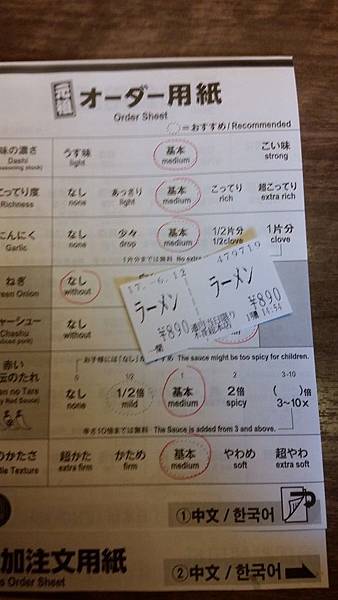 元祖 オーダー用紙
Order Sheet
=おすすめ/Recommended
味の濃さ うす味 基本 こい味
Dashi light medium strong
こってり度 なし あっさり 基本 こってり 超こってり
Richness none light medium rich extra rich
にんにく なし 少々 基本 1/2片分 1片分
Garlic none drop medium 1/2clove clove
1片分までは無料 No extra
ねぎ なし
Green Onion without
チャーシュー なし
Chashu without
17.-6.12
ラーメン
¥890
479719
ラーメン
¥890
14:54
お子様には「なし」 The sauce might be too spicy for children.
赤い 0 1/2 1 2 3-10
秘伝のたれ なし 1/2倍 基本 2倍 ( )倍
Red Sauce none mild medium spicy 3~10x
辛さ10倍までは無料 The Sauce is added from 3 and above.
のかたさ 超かた かため 基本 やわめ 超やわ
Texture extra firm firm medium soft extra soft
①中文 / 한국어
加注文用紙
Order Sheet
②中文 / 한국어